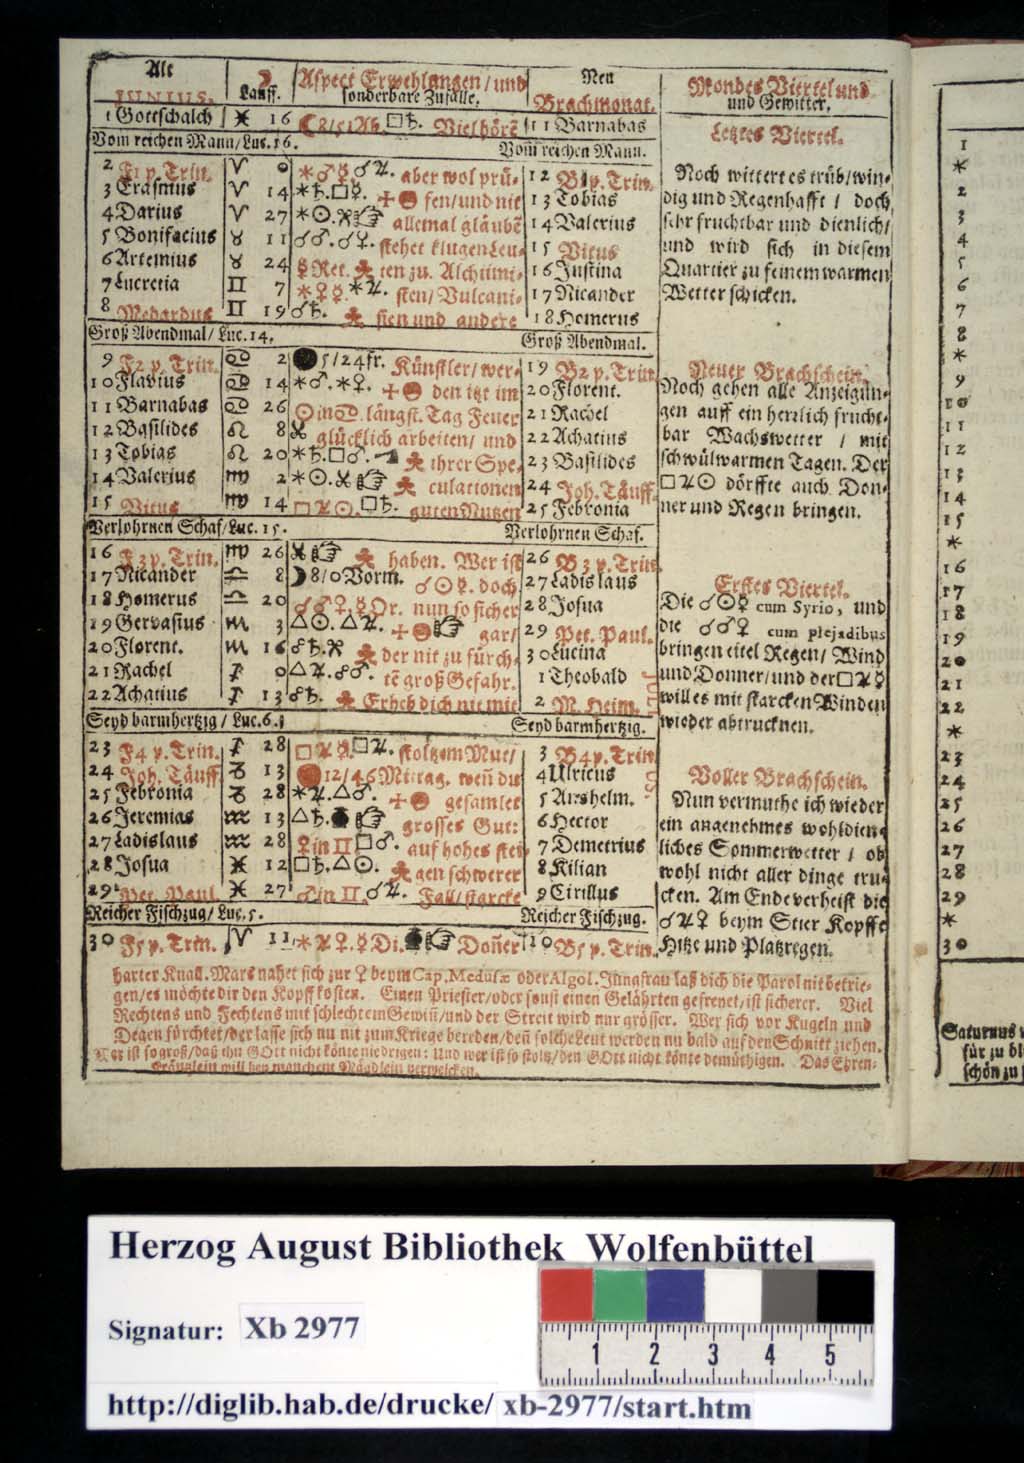 Alt | ☽ | Aspect Erwehlungen/ und | Neu | Mondes Viertel und
JUNIUS. | Lauff. | sonderbare Zufälle. | Brachmonat. | und Gewitter.
1 Gottschalch | ♓ 16 | □♄. Viel hörẽ | 11 Barnabas | Letztes Viertel.
Vom reichen Mann/ Luc. 16. | Vom reichen Mann.
2 F1 p. Trin. | ♈ 0 | ✶♂☿ ☌♃. aber wol prü- | 12 B1 p. Trin. | Noch wittert es trüb/ win-
3 Erasmus | ♈ 14 | ✶♄.□☿. fen/ und nit | 13 Tobias | dig und Regenhafft / doch
4 Darius | ♈ 27 | ✶☉. allemal gläubẽ | 14 Valerius | sehr fruchtbar und dienlich/
5 Bonifacius | ♉ 11 | ☌♂.☌♀. stehet klugen Leu- | 15 Vitus | und wird sich in diesem
6 Artemius | ♉ 24 | ☿ Ret. ten zu. Alchimi- | 16 Justina | Quartier zu feinem warmen
7 Lucretia | ♊ 7 | ✶♀☿.✶♃. sten/ Vulcani- | 17 Nicander | Wetter schicken.
8 Medardus | ♊ 19 | ☌♄. sten und andere | 18 Homerus
Groß Abendmal/ Luc. 14. | Groß Abendmal.
9 F2 p. Trin. | ♋ 2 | 5/24 fr. Künstler/ wer- | 19 B2 p. Trin. | Neuer Brachschein.
10 Flavius | ♋ 14 | ✶♂.✶♀. den itzt im | 20 Florent. | Noch gehen alle Anzeigun-
11 Barnabas | ♋ 26 | ☉ in ♋. längst. Tag Feuer | 21 Rachel | gen auff ein herzlich frucht-
12 Basilides | ♌ 8 | glücklich arbeiten/ und | 22 Achatius | bar Wachswetter / mit
13 Tobias | ♌ 20 | ✶♄.□♂. ihrer Spe- | 23 Basilides | schwülwarmen Tagen. Der
14 Valerius | ♍ 2 | ✶☉. culationen | 24 Joh. Täuff. | □♃☉ dörffte auch Don-
15 Vitus | ♍ 14 | □♃☉.□♄. guten Nutzen | 25 Febronia | ner und Regen bringen.
Verlohrnen Schaf/ Luc. 15. | Verlohrnen Schaf.
16 F3 p. Trin. | ♍ 26 | haben. Wer ist | 26 B3 p. Trin.
17 Nicander | ♎ 8 | ☽ 8/0 Vorm. ☌☉☿. doch | 27 Ladislaus | Erstes Viertel.
18 Homerus | ♎ 20 | ☌♂♀.☿ Or. nun so sicher | 28 Josua | Die ☌☉☿ cum Syrio, und
19 Gervasius | ♏ 3 | △☉.△♃. gar/ | 29 Pet. Paul. | die ☌♂♀ cum plejadibus
20 Florent. | ♏ 16 | ☍♄. der nit zu fürch- | 30 Lucina | bringen eitel Regen/ Wind
21 Rachel | ♐ 0 | △♃.☍♂. tẽ groß Gefahr. | 1 Theobald | und Donner/ und der □♃☿
22 Achatius | ♐ 13 | ☍♄. Erheb dich nie mit | 2 M. Heim. | will es mit starcken Winden
Seyd barmhertzig / Luc. 6. | Seyd barmhertzig. | wieder abtrucknen.
23 F4 p. Trin. | ♐ 28 | □♃☿.□♃. stoltzem Mut/ | 3 B4 p. Trin.
24 Joh. Täuff | ♑ 13 | 12/46 Mittag. weñ du | 4 Ulricus | Voller Brachschein.
25 Febronia | ♑ 28 | ✶♃.△♂. gesamlet | 5 Anshelm. | Nun vermuthe ich wieder
26 Jeremias | ♒ 13 | △♄. grosses Gut: | 6 Hector | ein angenehmes wohldien-
27 Ladislaus | ♒ 28 | ♀ in ♊ □♂. auf hohes stei- | 7 Demetrius | liches Sommerwetter / ob
28 Josua | ♓ 12 | □♄.△☉. gen schwerer | 8 Kilian | wohl nicht aller dinge tru-
29 Pet. Paul. | ♓ 27 | ♂ in ♊. ☌♃. Fall/ starcke | 9 Cirillus | cken. Am Ende verheist die
Reicher Fischzug/ Luc. 5. | Reicher Fischzug. | ☌♃♀ beym Stier Kopffe
30 F5 p. Trin. | ♈ 11 | ✶♃♀.☿ Di. Doñer | 10 B5 p. Trin. | Hitze und Platzregen.
harter Knall. Mars nahet sich zur ♀ beym Cap. Medusæ oder Algol. Jungfrau laß dich die Parol nit betrie-
gen/ es möchte dir den Kopff kosten. Einen Priester/ oder sonst einen Gelährten gefreyet/ ist sicherer. Viel
Rechtens und Fechtens mit schlechtem Gewiñ/ und der Streit wird nur grösser. Wer sich vor Kugeln und
Degen fürchtet/ der lasse sich nu nit zum Kriege bereden/ deñ solche Leut werden nu bald auf den Schnitt ziehen.
Wer ist so groß/ daß ihn GOtt nicht könte niedrigen: Und wer ist so stoltz/ den GOtt nicht könte demüthigen. Das Ehren-
Kräntzlein will bey manchem Mägdlein verwelcken.
1
*
2
3
4
5
6
7
8
*
9
10
11
12
13
14
15
*
16
17
18
19
20
21
22
*
23
24
25
26
27
28
29
*
30
Saturnus
für zu
schön zu
Herzog August Bibliothek Wolfenbüttel
Signatur: Xb 2977
1 2 3 4 5
http://diglib.hab.de/drucke/ xb-2977/start.htm